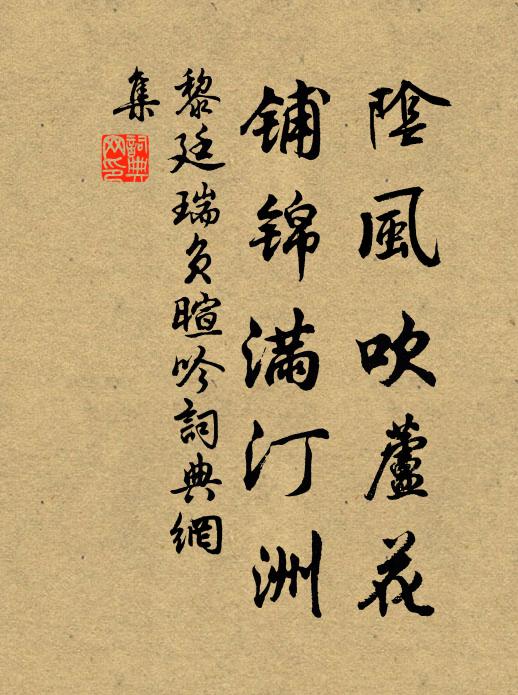 陰風吹蘆花
鋪錦滿汀洲
黎廷瑞負暄吟詞典網
集
詞典
网印